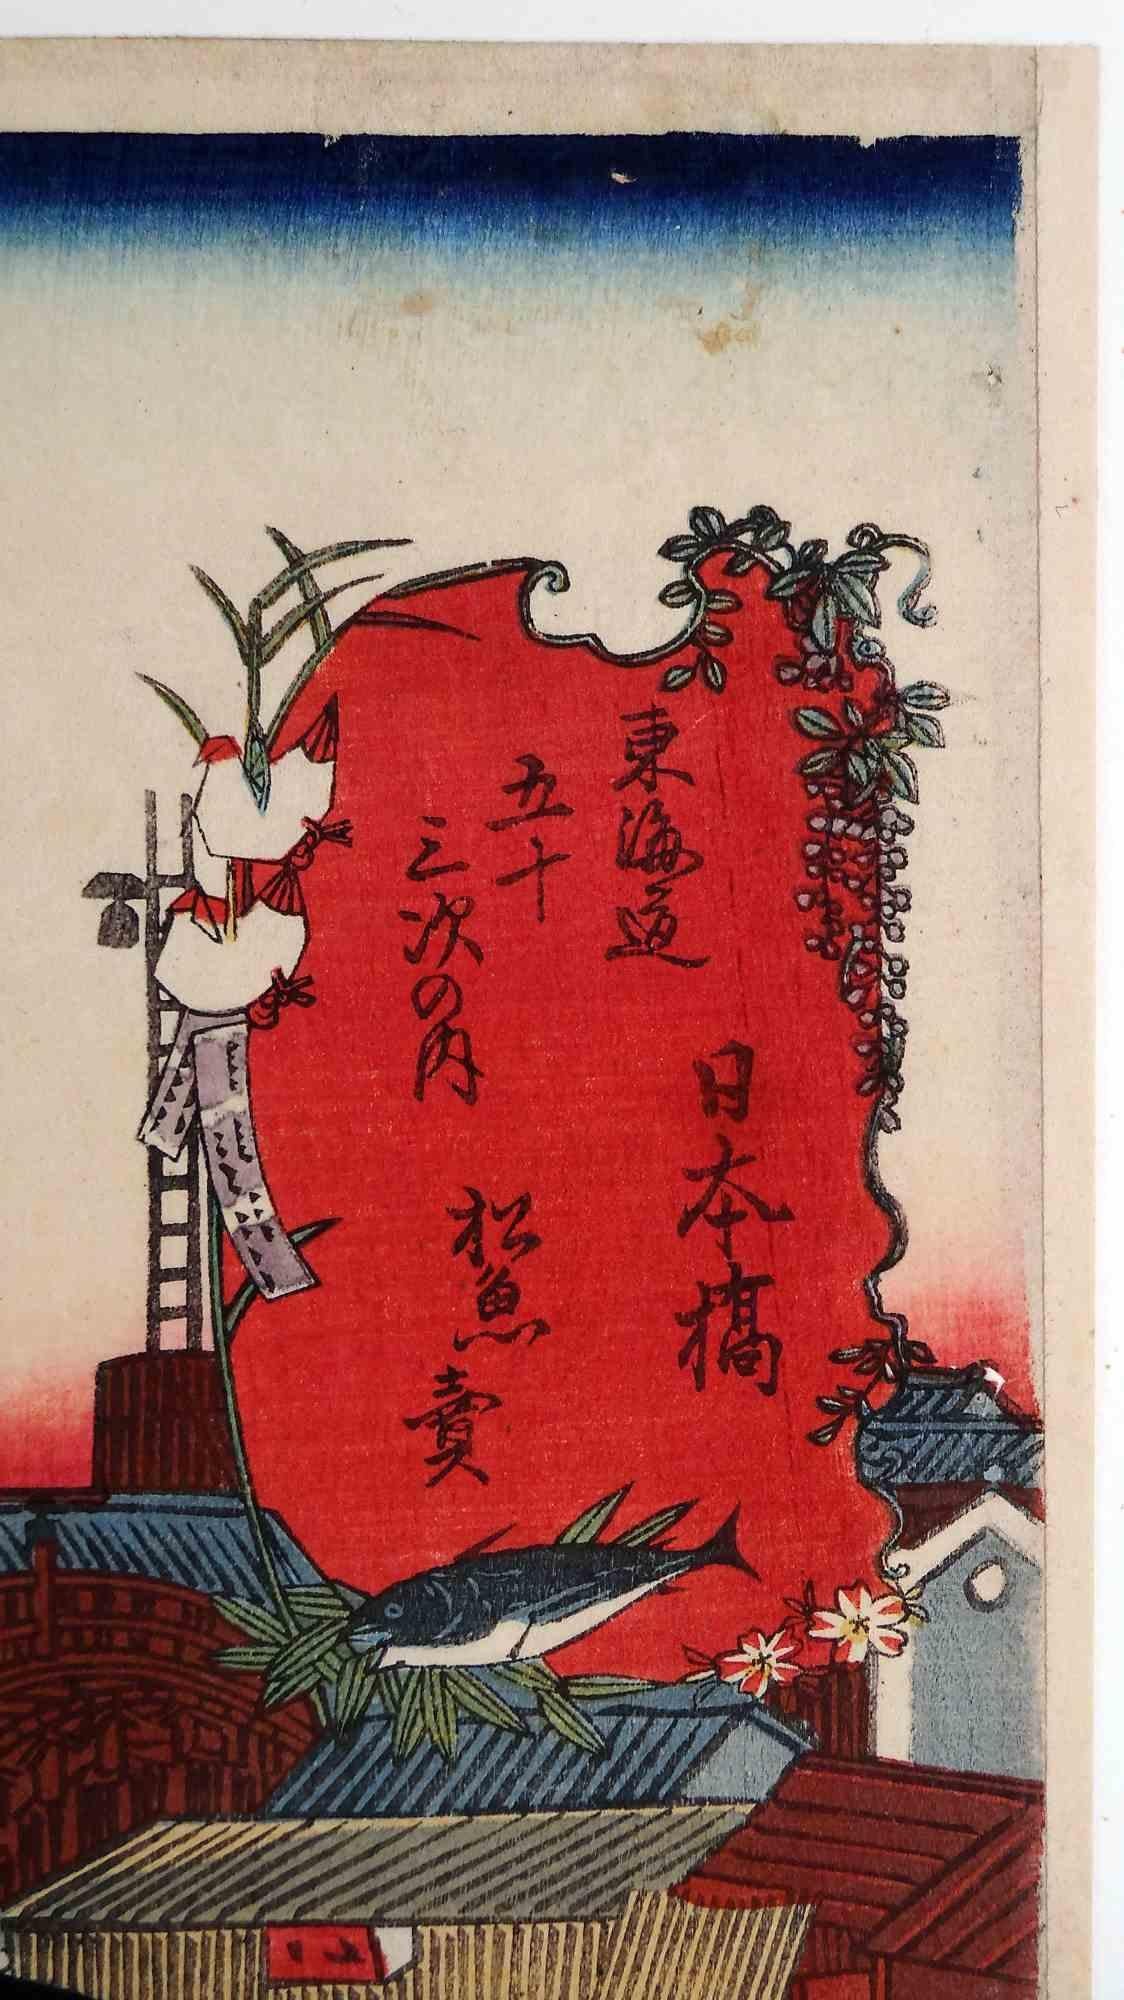 東海道
日本橋
五十
三次の内
松魚
賣